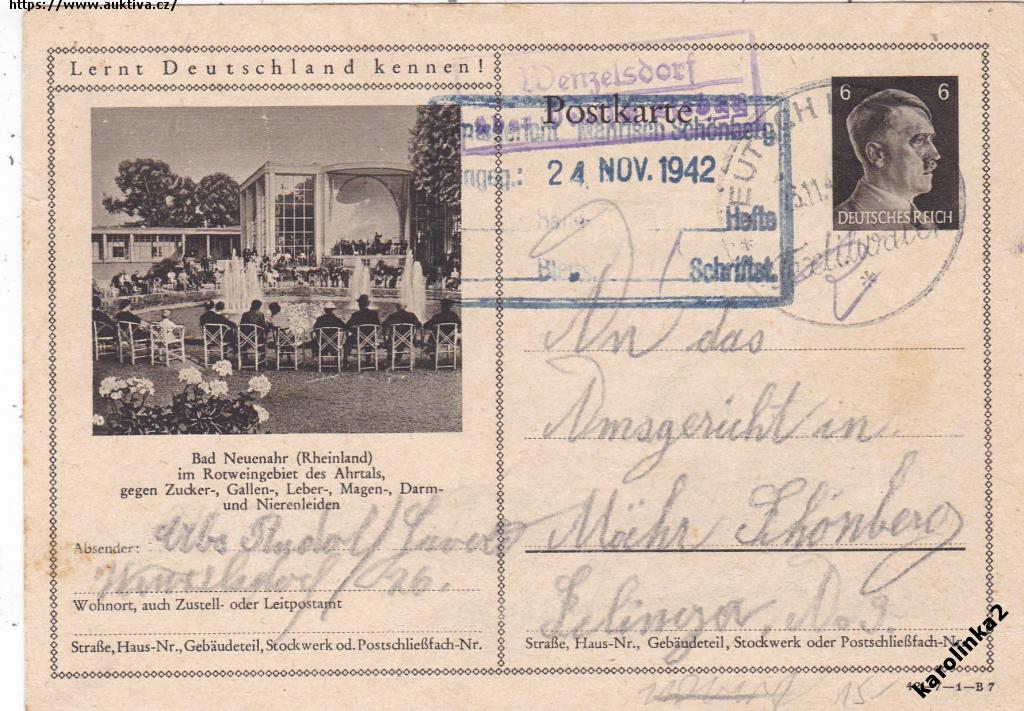 https://www.auktiva.cz/
Lernt Deutschland kennen!
Wenzelsdorf
Postkarte
Mährisch Schönberg
24 NOV. 1942
Hefte
Schriftst.
6 6
DEUTSCHES REICH
Bad Neuenahr (Rheinland)
im Rotweingebiet des Ahrtals,
gegen Zucker-, Gallen-, Leber-, Magen-, Darm-
und Nierenleiden
An das
Amsgericht in
Mähr Schönberg
N. 3.
Absender: Rudolf
26.
Wohnort, auch Zustell- oder Leitpostamt
Straße, Haus-Nr., Gebäudeteil, Stockwerk od. Postschließfach-Nr.
Straße, Haus-Nr., Gebäudeteil, Stockwerk oder Postschließfach-Nr.
15
—1—B 7
karolinka2